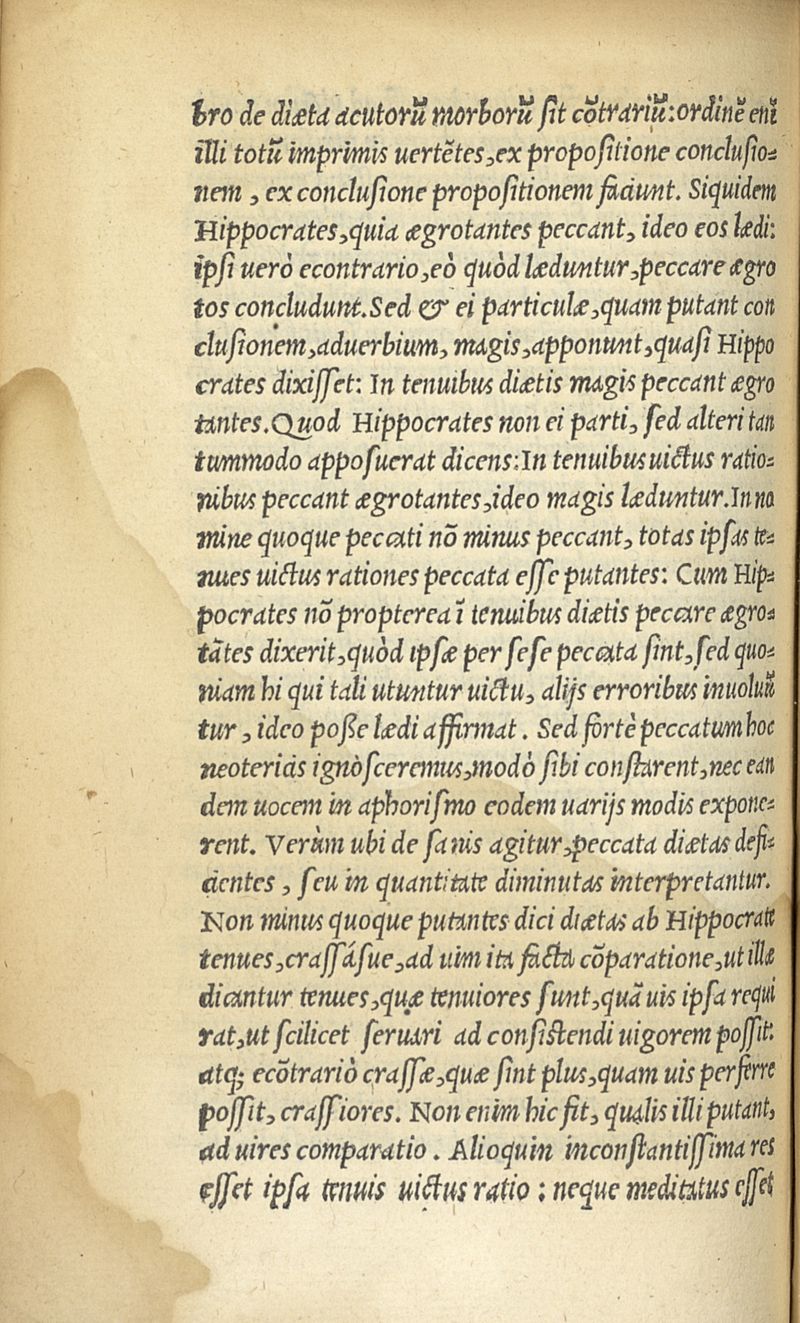 bro de diæta acutorũ morborũ ſit cõtrariũ: ordinẽ enĩ
illi totũ imprimis uertẽtes, ex propoſitione concluſio-
nem, ex concluſione propoſitionem faciunt. Siquidem
Hippocrates, quia ægrotantes peccant, ideo eos lædi:
ipſi uerò econtrario, eò quòd læduntur, peccare ægro
tos concludunt. Sed & ei particulæ, quam putant con
cluſionem, aduerbium, magis, apponunt, quaſi Hippo
crates dixiſſet: In tenuibus diætis magis peccant ægro
tantes. Quod Hippocrates non ei parti, ſed alteri tan
tummodo appoſuerat dicens: In tenuibus uictus ratio-
nibus peccant ægrotantes, ideo magis læduntur. In no
mine quoque peccati nõ minus peccant, totas ipſas te-
nues uictus rationes peccata eſſe putantes: Cum Hip-
pocrates nõ propterea ĩ tenuibus diætis peccare ægro-
tãtes dixerit, quòd ipſæ per ſeſe peccata ſint, ſed quo-
niam hi qui tali utuntur uictu, alijs erroribus inuoluũ
tur, ideo poſſe lædi affirmat. Sed fortè peccatum hoc
neotericis ignòſceremus, modò ſibi conſtarent, nec ean
dem uocem in aphoriſmo eodem uarijs modis expone-
rent. Verùm ubi de ſanis agitur, peccata diætas defi-
cientes, ſeu in quantitate diminutas interpretantur.
Non minus quoque putantes dici diætas ab Hippocrate
tenues, craſſáſue, ad uim ita facta cõparatione, ut illæ
dicantur tenues, quæ tenuiores ſunt, quã uis ipſa requi
rat, ut ſcilicet ſeruari ad conſiſtendi uigorem poſſit:
atq; ecõtrariò craſſæ, quæ ſint plus, quam uis perferre
poſſit, craſſiores. Non enim hic fit, qualis illi putant,
ad uires comparatio. Alioquin inconſtantiſſima res
eſſet ipſa tenuis uictus ratio: neque meditatus eſſet